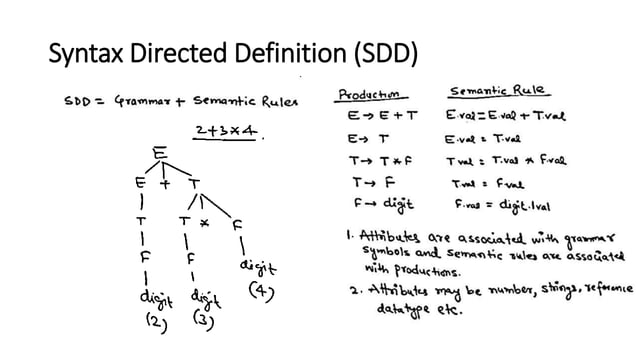 Syntax Directed Definition (SDD)
SDD = Grammar + Semantic Rules
2+3*4
E
E + T
T T * F
F F digit
digit digit (4)
(2) (3)
Production Semantic Rule
E → E + T E.val = E.val + T.val
E → T E.val = T.val
T → T * F T.val = T.val * F.val
T → F T.val = F.val
F → digit F.val = digit.lval
1. Attributes are associated with grammar
symbols and semantic rules are associated
with productions.
2. Attributes may be number, strings, reference
datatype etc.